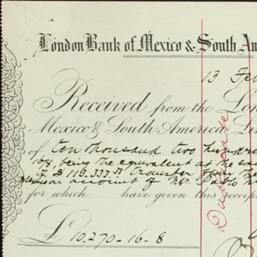 London Bank of Mexico & South Am
13 Feb
Received from the Lon
Mexico & South America, Li
of ten thousand two hundred
16/8, being the equivalent at the
$ 118.337.57 transfer from the
account of Mr. Pablo
for which have given this receip
£10.270-16-8
Duplicate